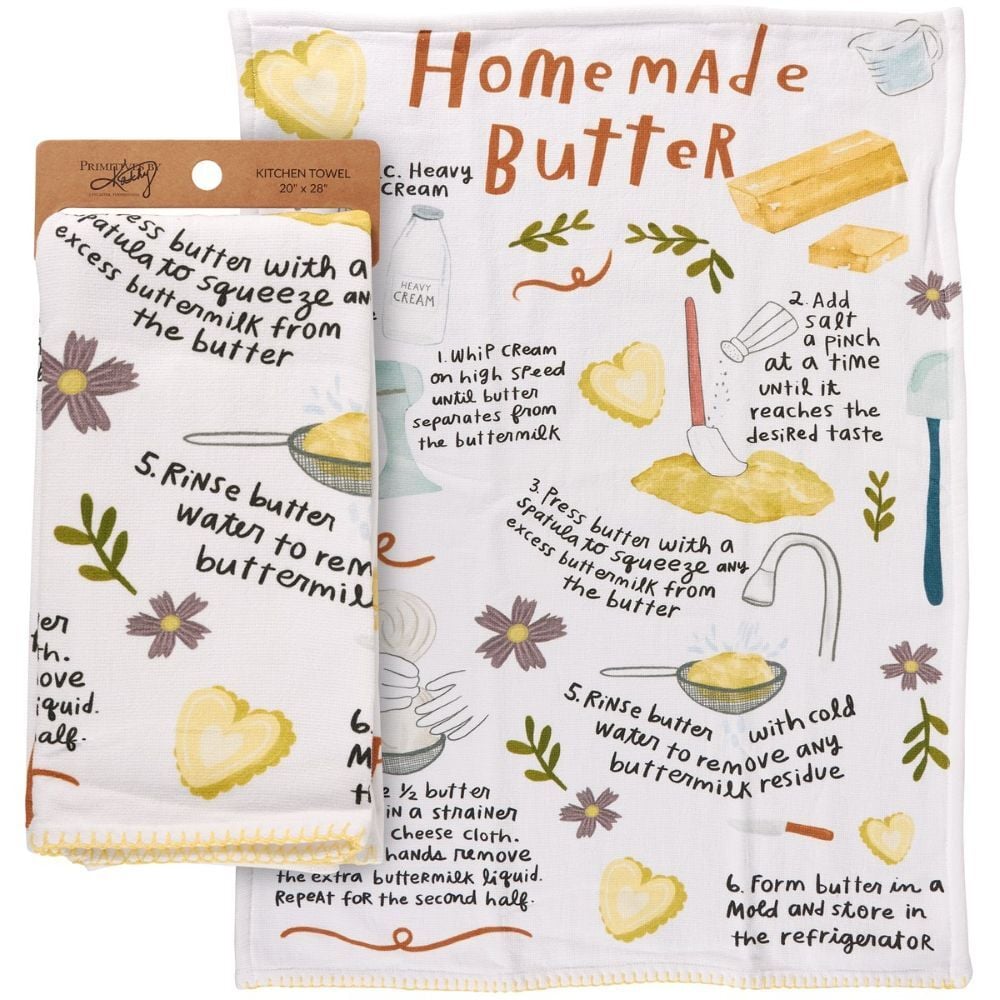 Homemade
Butter
PRIMITIVES BY
Kathy
KITCHEN TOWEL
20" x 28"
press butter with a
spatula to squeeze an
excess buttermilk from
the butter
5. Rinse butter
water to rem
buttermil
er
th.
ove
iquid.
alf.
6.
M
th
C. Heavy
Cream
HEAVY
CREAM
1. Whip cream
on high speed
until butter
separates from
the buttermilk
2. Add
salt
a pinch
at a time
until it
reaches the
desired taste
3. Press butter with a
spatula to squeeze any
excess buttermilk from
the butter
5. Rinse butter with cold
water to remove any
buttermilk residue
½ butter
in a strainer
cheese cloth.
hands remove
the extra buttermilk liquid.
Repeat for the second half.
6. Form butter in a
mold and store in
the refrigerator